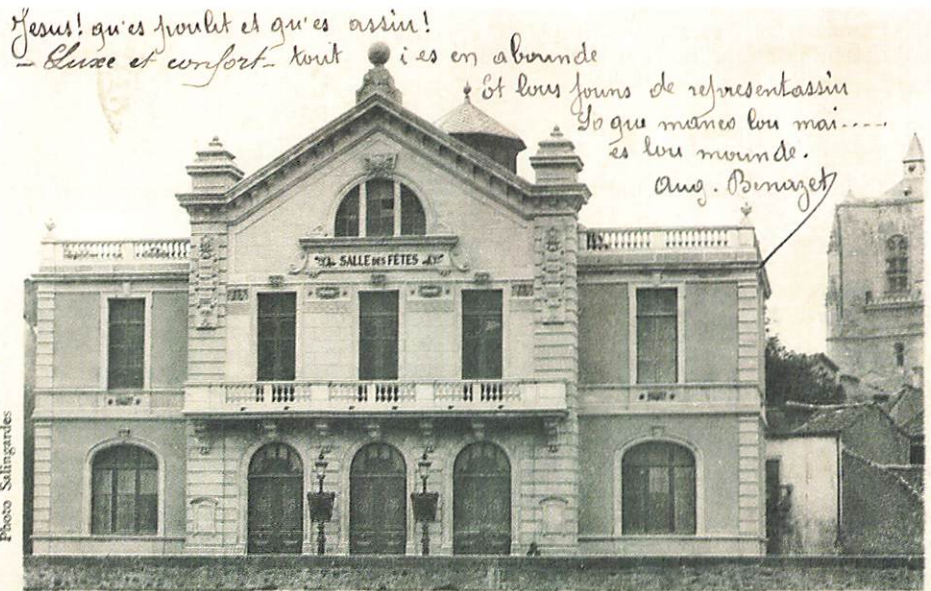 Jesus! qu'es poulit et qu'es assiu!
- Luxe et confort - tout i es en abounde
Et lous founs de representassiu
So que manco lou mai....
es lou mounde.
Aug. Benazet
SALLE DES FÊTES
Photo Salingardes